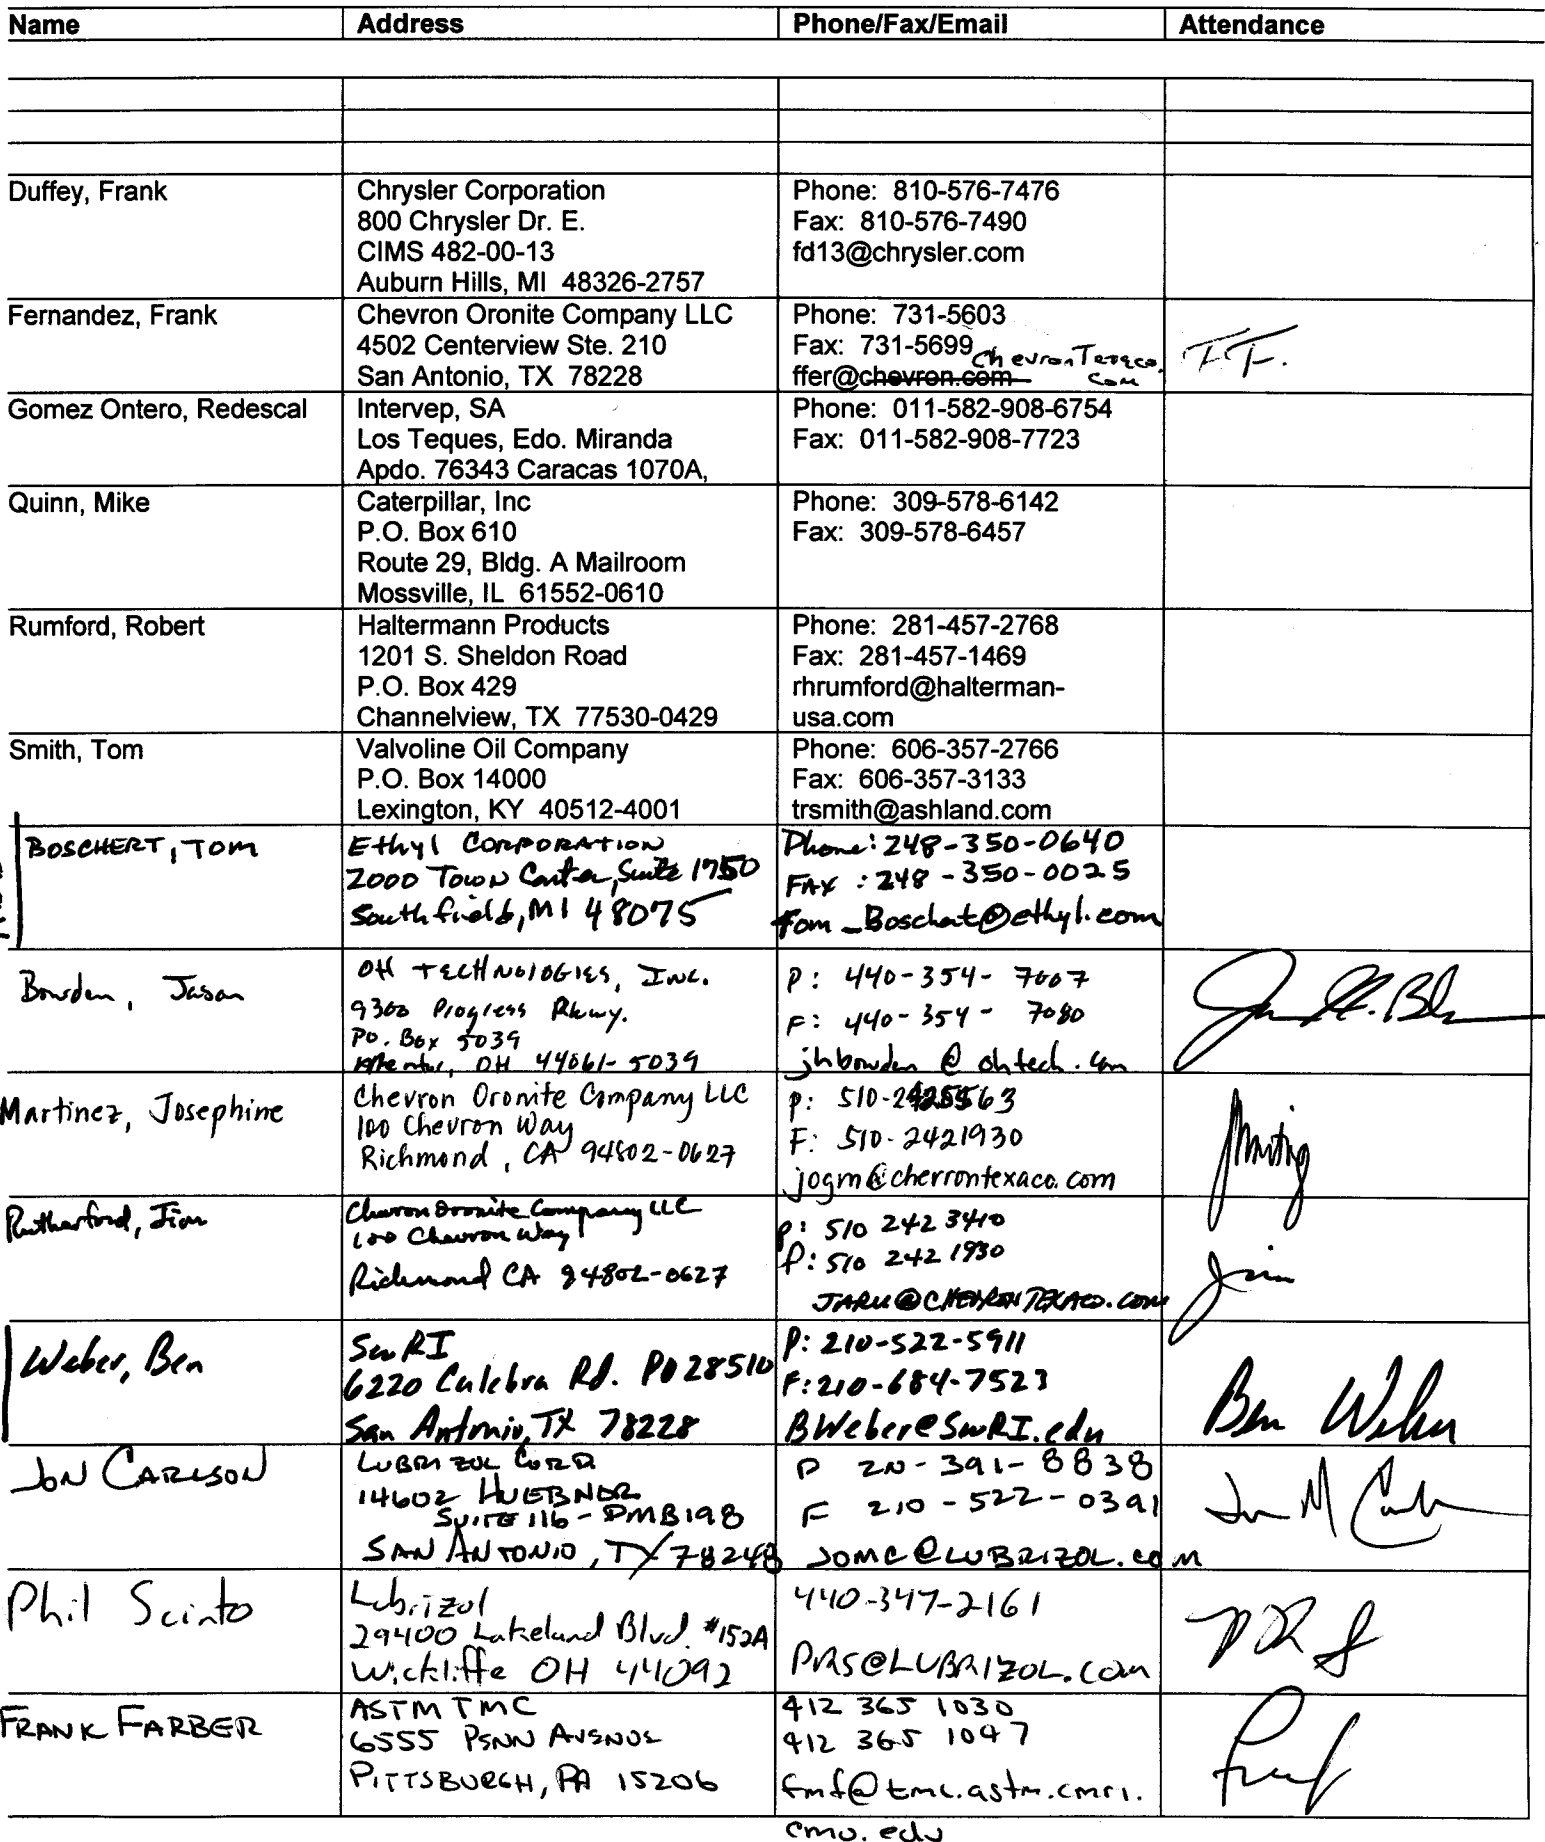 Name Address Phone/Fax/Email Attendance
Duffey, Frank
Chrysler Corporation
800 Chrysler Dr. E.
CIMS 482-00-13
Auburn Hills, MI 48326-2757
Phone: 810-576-7476
Fax: 810-576-7490
fd13@chrysler.com
Fernandez, Frank
Chevron Oronite Company LLC
4502 Centerview Ste. 210
San Antonio, TX 78228
Phone: 731-5603
Fax: 731-5699
ffer@chevron.com ChevronTexaco.
com
F.F.
Gomez Ontero, Redescal
Intervep, SA
Los Teques, Edo. Miranda
Apdo. 76343 Caracas 1070A,
Phone: 011-582-908-6754
Fax: 011-582-908-7723
Quinn, Mike
Caterpillar, Inc
P.O. Box 610
Route 29, Bldg. A Mailroom
Mossville, IL 61552-0610
Phone: 309-578-6142
Fax: 309-578-6457
Rumford, Robert
Haltermann Products
1201 S. Sheldon Road
P.O. Box 429
Channelview, TX 77530-0429
Phone: 281-457-2768
Fax: 281-457-1469
rhrumford@halterman-
usa.com
Smith, Tom
Valvoline Oil Company
P.O. Box 14000
Lexington, KY 40512-4001
Phone: 606-357-2766
Fax: 606-357-3133
trsmith@ashland.com
BOSCHERT, TOM
Ethyl CORPORATION
2000 Town Center, Suite 1750
Southfield, MI 48075
Phone: 248-350-0640
FAX: 248-350-0025
Tom_Boschert@ethyl.com
Bowden, Jason
OH TECHNOLOGIES, INC.
9300 Progress Pkwy.
PO. Box 5039
Mentor, OH 44061-5039
P: 440-354-7007
F: 440-354-7080
jhbowden @ ohtech.com
Martinez, Josephine
Chevron Oronite Company LLC
100 Chevron Way
Richmond, CA 94802-0627
P: 510-2425563
F: 510-2421930
jogm@chevrontexaco.com
Rutherford, Jim
Chevron Oronite Company LLC
100 Chevron Way
Richmond CA 94802-0627
P: 510 242 3410
F: 510 242 1930
JARU@CHEVRONTEXACO.COM
Jim
Weber, Ben
SwRI
6220 Culebra Rd. PO 28510
San Antonio, TX 78228
P: 210-522-5911
F: 210-684-7523
BWeber@SwRI.edu
Ben Weber
JON CARLSON
LUBRIZOL CORP
14602 HUEBNER
SUITE 116 - PMB198
SAN ANTONIO, TX 78248
P 210-391-8838
F 210-522-0391
JOMC@LUBRIZOL.COM
Phil Scinto
Lubrizol
29400 Lakeland Blvd. #152A
Wickliffe OH 44092
440-347-2161
PRS@LUBRIZOL.com
FRANK FARBER
ASTM TMC
6555 PENN AVENUE
PITTSBURGH, PA 15206
412 365 1030
412 365 1047
fmf@tmc.astm.cmri.
cmu.edu